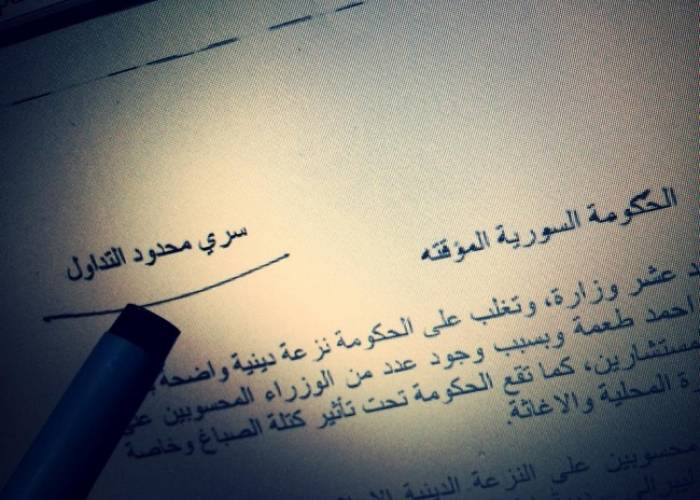 الحكومة السورية المؤقته
سري محدود التداول
عشر وزارة، وتغلب على الحكومة نزعة دينية واضحة
احمد طعمة وبسبب وجود عدد من الوزراء المحسوبين
كما تقع الحكومة تحت تأثير كتلة الصباغ وخاصة
المحلية والاغاثة.
على النزعة الدينية